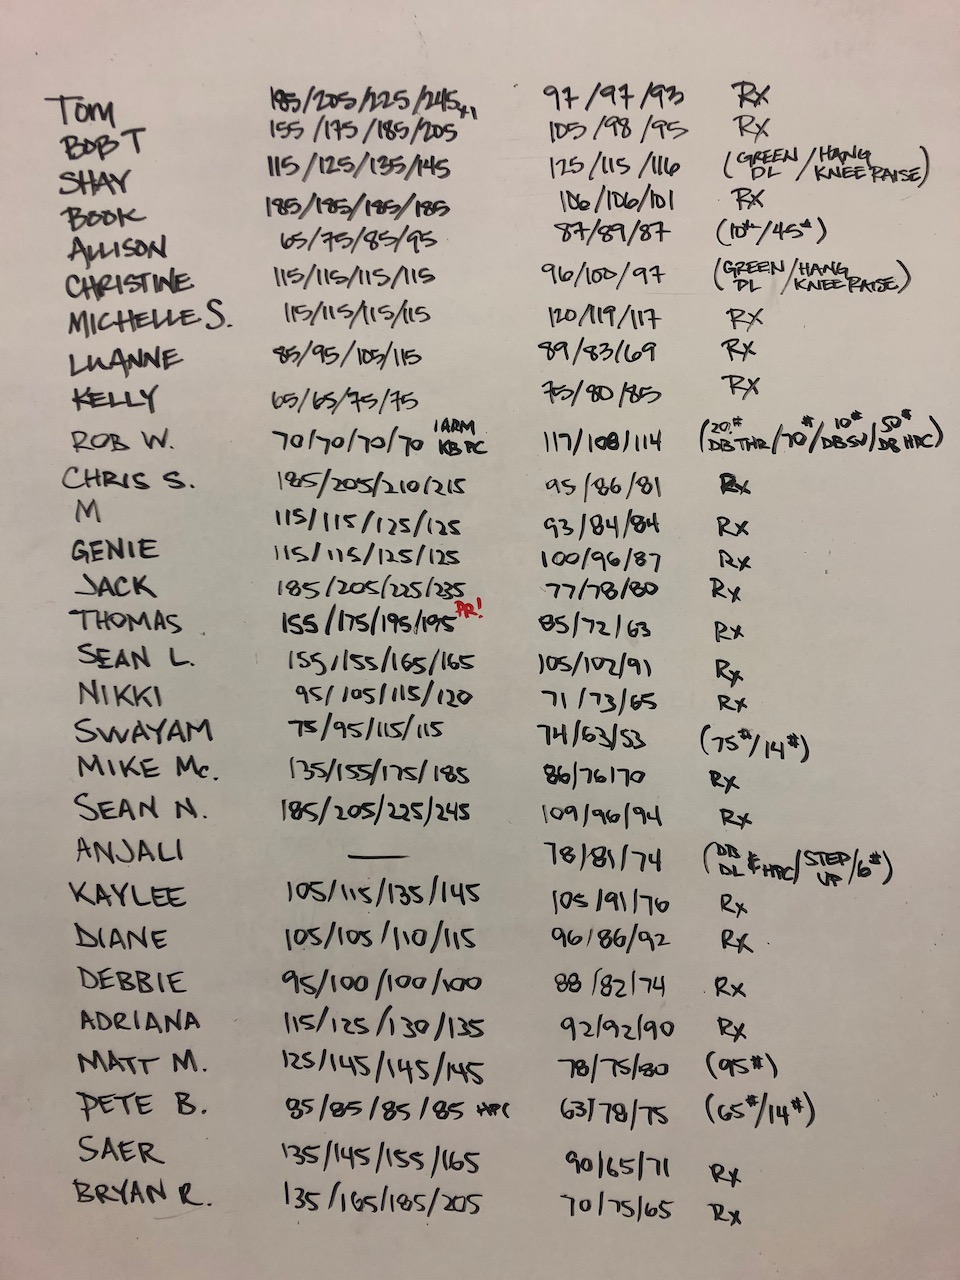 TOM 185/205/225/245x1 97/97/93 RX
BOB T 155/175/185/205 105/98/95 RX
SHAY 115/125/135/145 125/115/116 (GREEN DL/HANG KNEE RAISE)
BOOK 185/185/185/185 106/106/101 RX
ALLISON 65/75/85/95 87/89/87 (10#/45#)
CHRISTINE 115/115/115/115 96/100/97 (GREEN DL/HANG KNEE RAISE)
MICHELLE S. 115/115/115/115 120/119/117 RX
LUANNE 85/95/105/115 89/83/69 RX
KELLY 65/65/75/75 75/80/85 RX
ROB W. 70/70/70/70 1 ARM KB PC 117/108/114 (20# DB THR/70#/10# DB SU/50# DB HPC)
CHRIS S. 185/205/210/215 95/86/81 Rx
M 115/115/125/125 93/84/84 Rx
GENIE 115/115/125/125 100/96/87 Rx
JACK 185/205/225/235 77/78/80 Rx
THOMAS 155/175/195/195 PR! 85/72/63 Rx
SEAN L. 155/155/165/165 105/102/91 Rx
NIKKI 95/105/115/120 71/73/65 Rx
SWAYAM 75/95/115/115 74/63/53 (75#/14#)
MIKE Mc. 135/155/175/185 86/76/70 Rx
SEAN N. 185/205/225/245 109/96/94 Rx
ANJALI — 78/81/74 (DB DL & HPC/STEP UP/6#)
KAYLEE 105/115/135/145 105/91/76 Rx
DIANE 105/105/110/115 96/86/92 Rx
DEBBIE 95/100/100/100 88/82/74 Rx
ADRIANA 115/125/130/135 92/92/90 Rx
MATT M. 125/145/145/145 78/75/80 (95#)
PETE B. 85/85/85/85 HPC 63/78/75 (65#/14#)
SAER 135/145/155/165 90/65/71 Rx
BRYAN R. 135/165/185/205 70/75/65 Rx